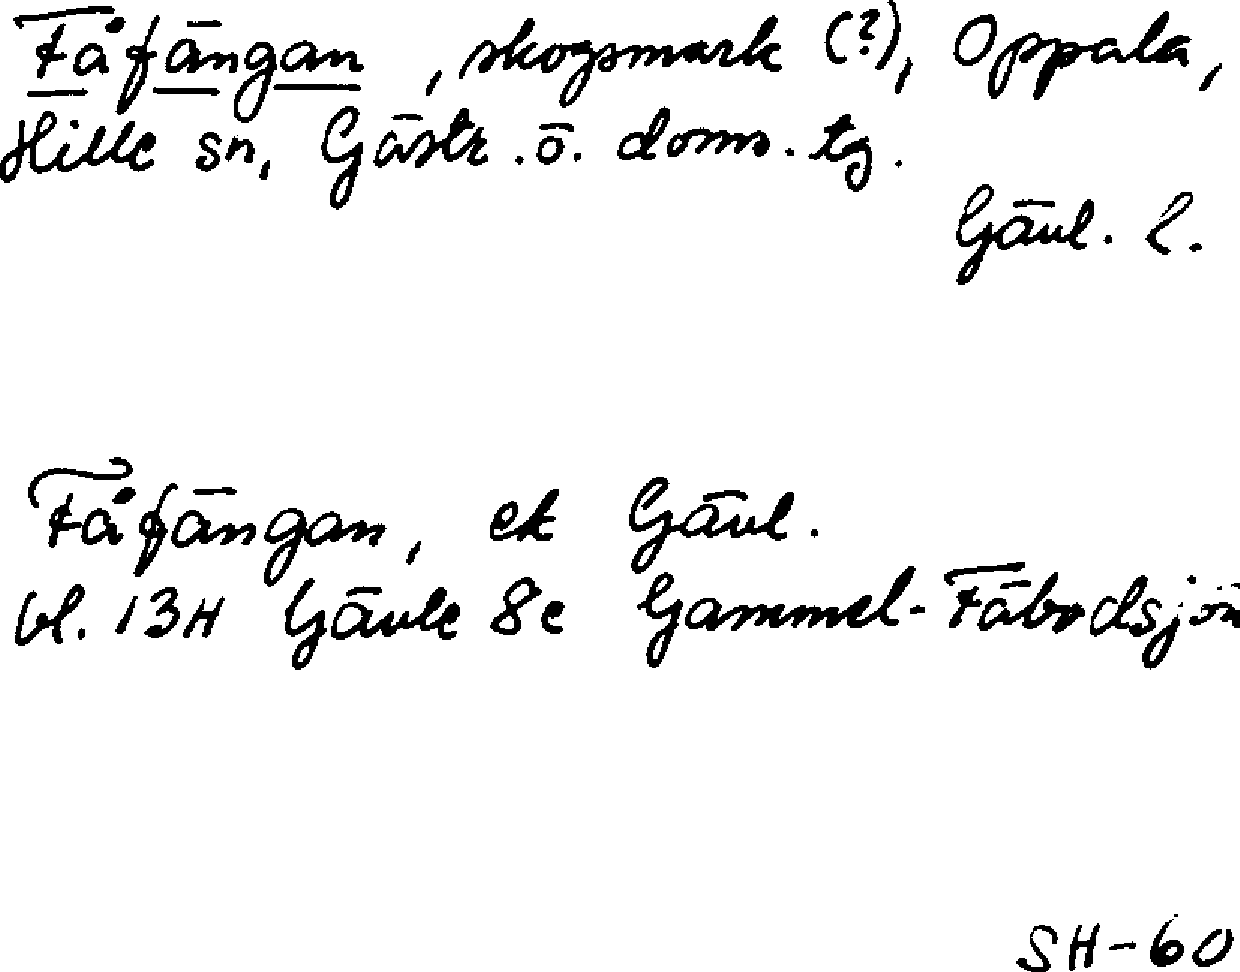 Fåfängan, skogsmark (?), Oppala,
Hille sn, Gästr. ö. doms. tg.
Gävl. l.
Fåfängan, ek Gävl.
bl. 13H Gävle 8c Gammel-Fäbodsjön
SH-60